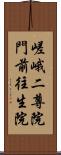 嵯峨二尊院
門前往生院